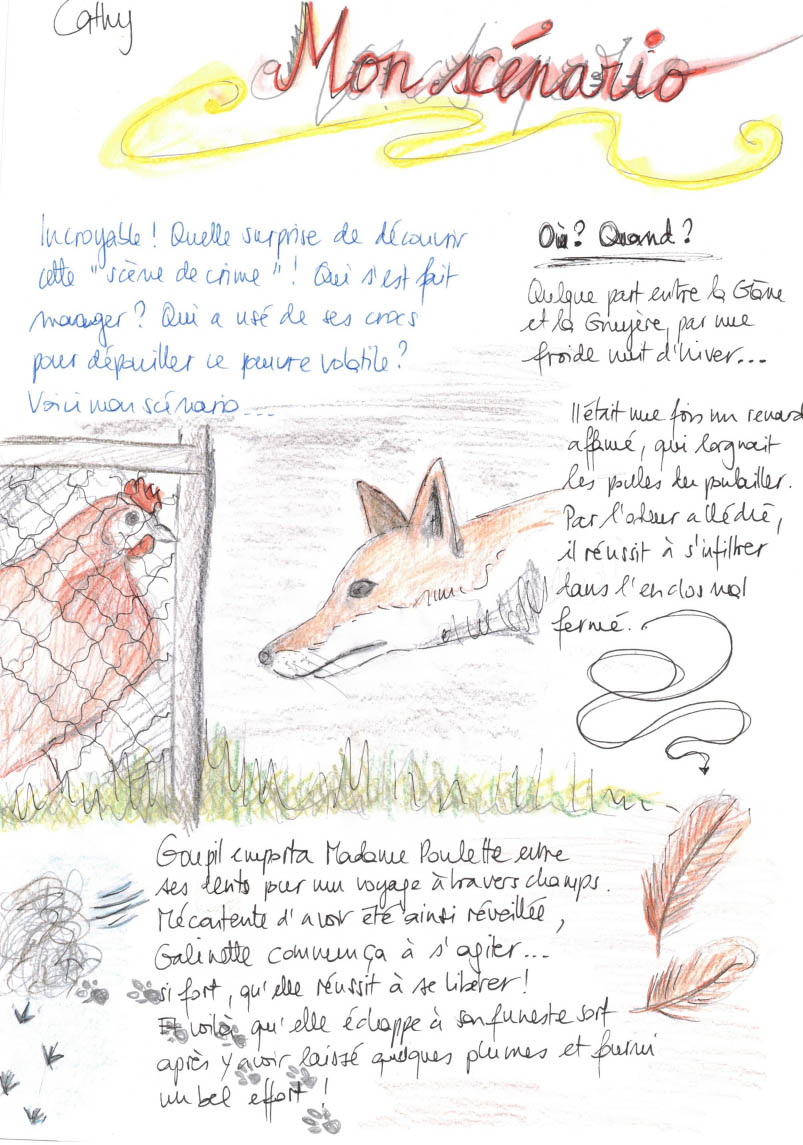 Cathy
Mon scénario
Incroyable ! Quelle surprise de découvrir
cette "scène de crime" ! Qui s'est fait
manger ? Qui a usé de ses crocs
pour dépouiller ce pauvre volatile ?
Voici mon scénario...
Où ? Quand ?
Quelque part entre la Glâne
et la Gruyère, par une
froide nuit d'hiver...
Il était une fois un renard
affamé, qui lorgnait
les poules du poulailler.
Par l'odeur alléché,
il réussit à s'infiltrer
dans l'enclos mal
fermé.
Goupil emporta Madame Poulette entre
ses dents pour un voyage à travers champs.
Mécontente d'avoir été ainsi réveillée,
Galinette commença à s'agiter...
si fort, qu'elle réussit à se libérer !
Et voilà qu'elle échappe à son funeste sort
après y avoir laissé quelques plumes et fourni
un bel effort !